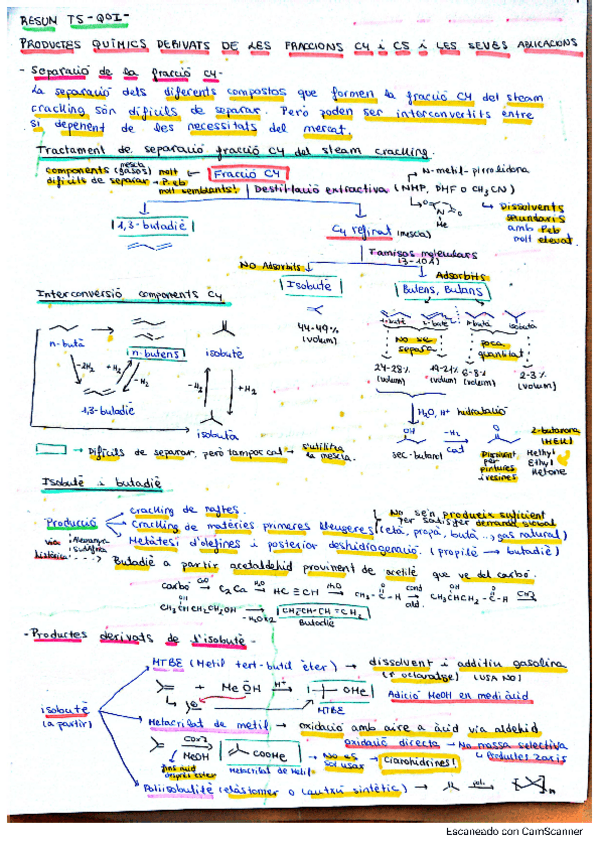 RESUM TS-QOI-
PRODUCTES QUÍMICS DERIVATS DE LES FRACCIONS C4 i C5 i LES SEVES APLICACIONS
- Separació de la fracció C4 -
La separació dels diferents compostos que formen la fracció C4 del steam
cracking són difícils de separar. Però poden ser interconvertits entre
si depenent de les necessitats del mercat.
Tractament de separació fracció C4 del steam cracking.
components (gasos) molt
mescla
difícils de separar → P.eb
molt semblants!
Fracció C4
N-metil-pirrolidona
Destil·lació extractiva (NMP, DMF o CH3CN)
Me
Dissolvents
secundaris
amb Peb
molt elevat.
1,3-butadiè
C4 refinat (mescla)
Tamisos moleculars
(3-10Å)
No Adsorbits
Adsorbits
Isobutè
Butens, Butans
44-49%
(volum)
1-butè
2-butè
n-butà
isobutà
No se
separa
poca
quantitat
24-28%
(volum)
19-21%
(volum)
6-8%
(volum)
2-3%
(volum)
Interconversió components C4
n-butà
n-butens
isobutè
-2H2
+H2
-H2
-H2
+H2
1,3-butadiè
isobutà
H2O, H+ hidratació
OH
-H2
cat
O
sec-butanol
2-butanona
(MEK)
Dissolvent
per
pintures
i resines
Methyl
Ethyl
Ketone
→ Difícils de separar, però tampoc cal → s'utilitza
la mescla.
Isobutè i butadiè
Producció
Cracking de naftes.
Cracking de matèries primeres lleugeres (età, propà, butà... gas natural)
No se'n produeix suficient
per satisfer demanda global
Metàtesi d'olefines i posterior deshidrogenació. (propilè → butadiè)
via
històrica
Alemanya
Sudàfrica
Butadiè a partir acetaldehid provinent de acetilè que ve del carbó.
carbó CaO → CaC2 H2O → HC≡CH H2O → CH3-C-H cond ald. → CH3CHCH2-C-H
CH3CHCH2CH2OH -H2O x2 → CH2=CH-CH=CH2
Butadiè
- Productes derivats de l'isobutè -
isobutè
(a partir)
MTBE (Metil tert-butil èter) → dissolvent i additiu gasolina
(↑ octanatge) (USA NO)
+ MeOH H+ → OMe
MTBE
Adició MeOH en medi àcid
Metacrilat de metil → oxidació amb aire a àcid via aldehid
oxidació directa → No massa selectiva
Productes tòxics
MeOH
COOMe
fins àcid
després ester
Metacrilat de Metil
→ No es
sol usar → Cianohidrines!
Poliisobutilè (elastòmer o cautxú sintètic) →
n
Escaneado con CamScanner